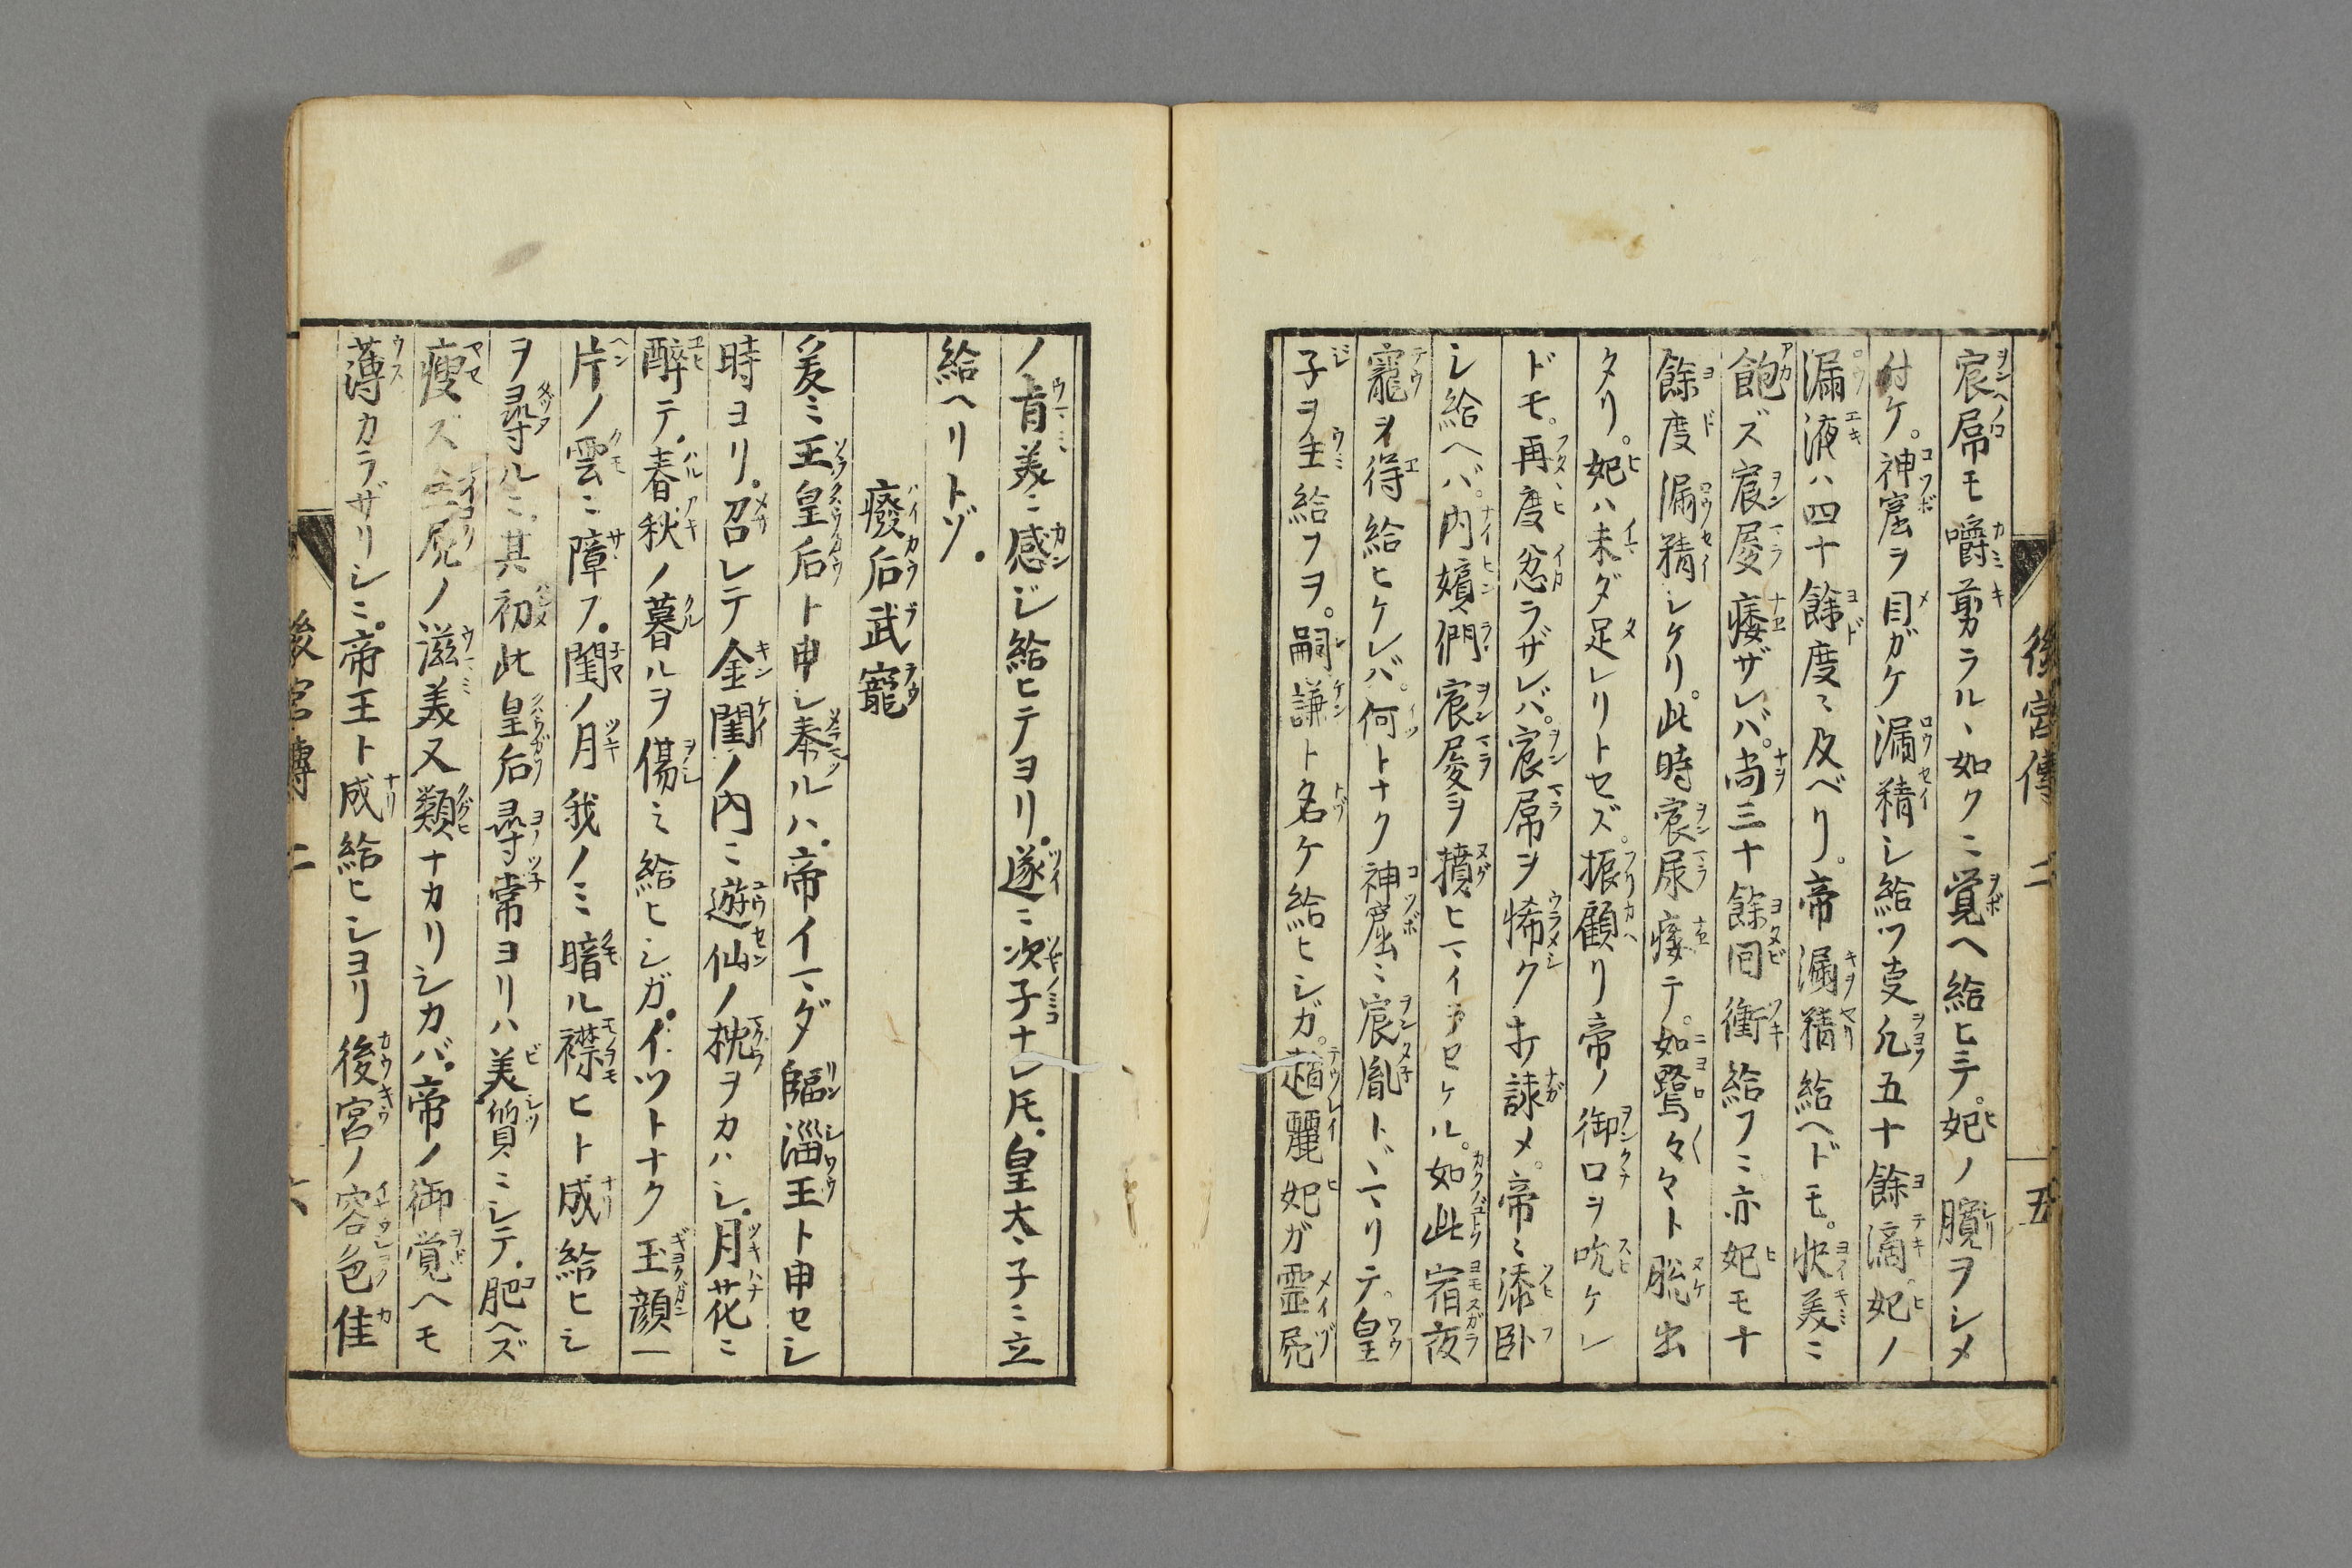 後宮傳 二 五
宸屌モ嚼剪ラルヽ如クニ覚ヘ給ヒテ。妃ノ臗ヲシメ
付ケ。神窟ヲ目ガケ漏精シ給フ叓凡五十餘滴。妃ノ
漏液ハ四十餘度ニ及ベリ。帝漏精給ヘドモ。快美ニ
飽ズ宸屡痿ザレバ。尚三十餘囘衝給フニ亦妃モ十
餘度漏精レケリ。此時宸屎痿テ。如鷺々々ト脱出
タリ。妃ハ未ダ足レリトセズ。振顧リ帝ノ御口ヲ吮ケレ
ドモ。再度忿ラザレバ。宸屌ヲ悕クオ詠メ。帝ニ添卧
シ給ヘバ。内嬪們宸屡ヲ擯ヒマイラセケル。如此宿夜
寵ヲ得給ヒケレバ。何トナク神窟ニ宸胤トヾマリテ。皇
子ヲ生給フヲ。嗣謙ト名ケ給ヒシガ。趙麗妃ガ霊屄
ノ肯美ニ感ジ給ヒテヨリ。遂ニ次子ナレ𪜈。皇太子ニ立
給ヘリトゾ。
癈后武寵
爰ニ王皇后ト申シ奉ルハ。帝イマダ臨淄王ト申セシ
時ヨリ。召レテ金閨ノ内ニ遊仙ノ枕ヲカハシ。月花ニ
醉テ。春秋ノ暮ルヲ傷ミ給ヒシガ。イツトナク玉顔一
片ノ雲ニ障フ。閨ノ月我ノミ暗ル襟ヒト成給ヒシ
ヲ尋ルニ。其初此皇后尋常ヨリハ美質ニシテ。肥ヘズ
瘦ズ屄ノ滋美又類ナカリシカバ。帝ノ御覚ヘモ
薄カラザリシニ。帝王ト成給ヒシヨリ後宮ノ容色佳
後宮傳 二 六